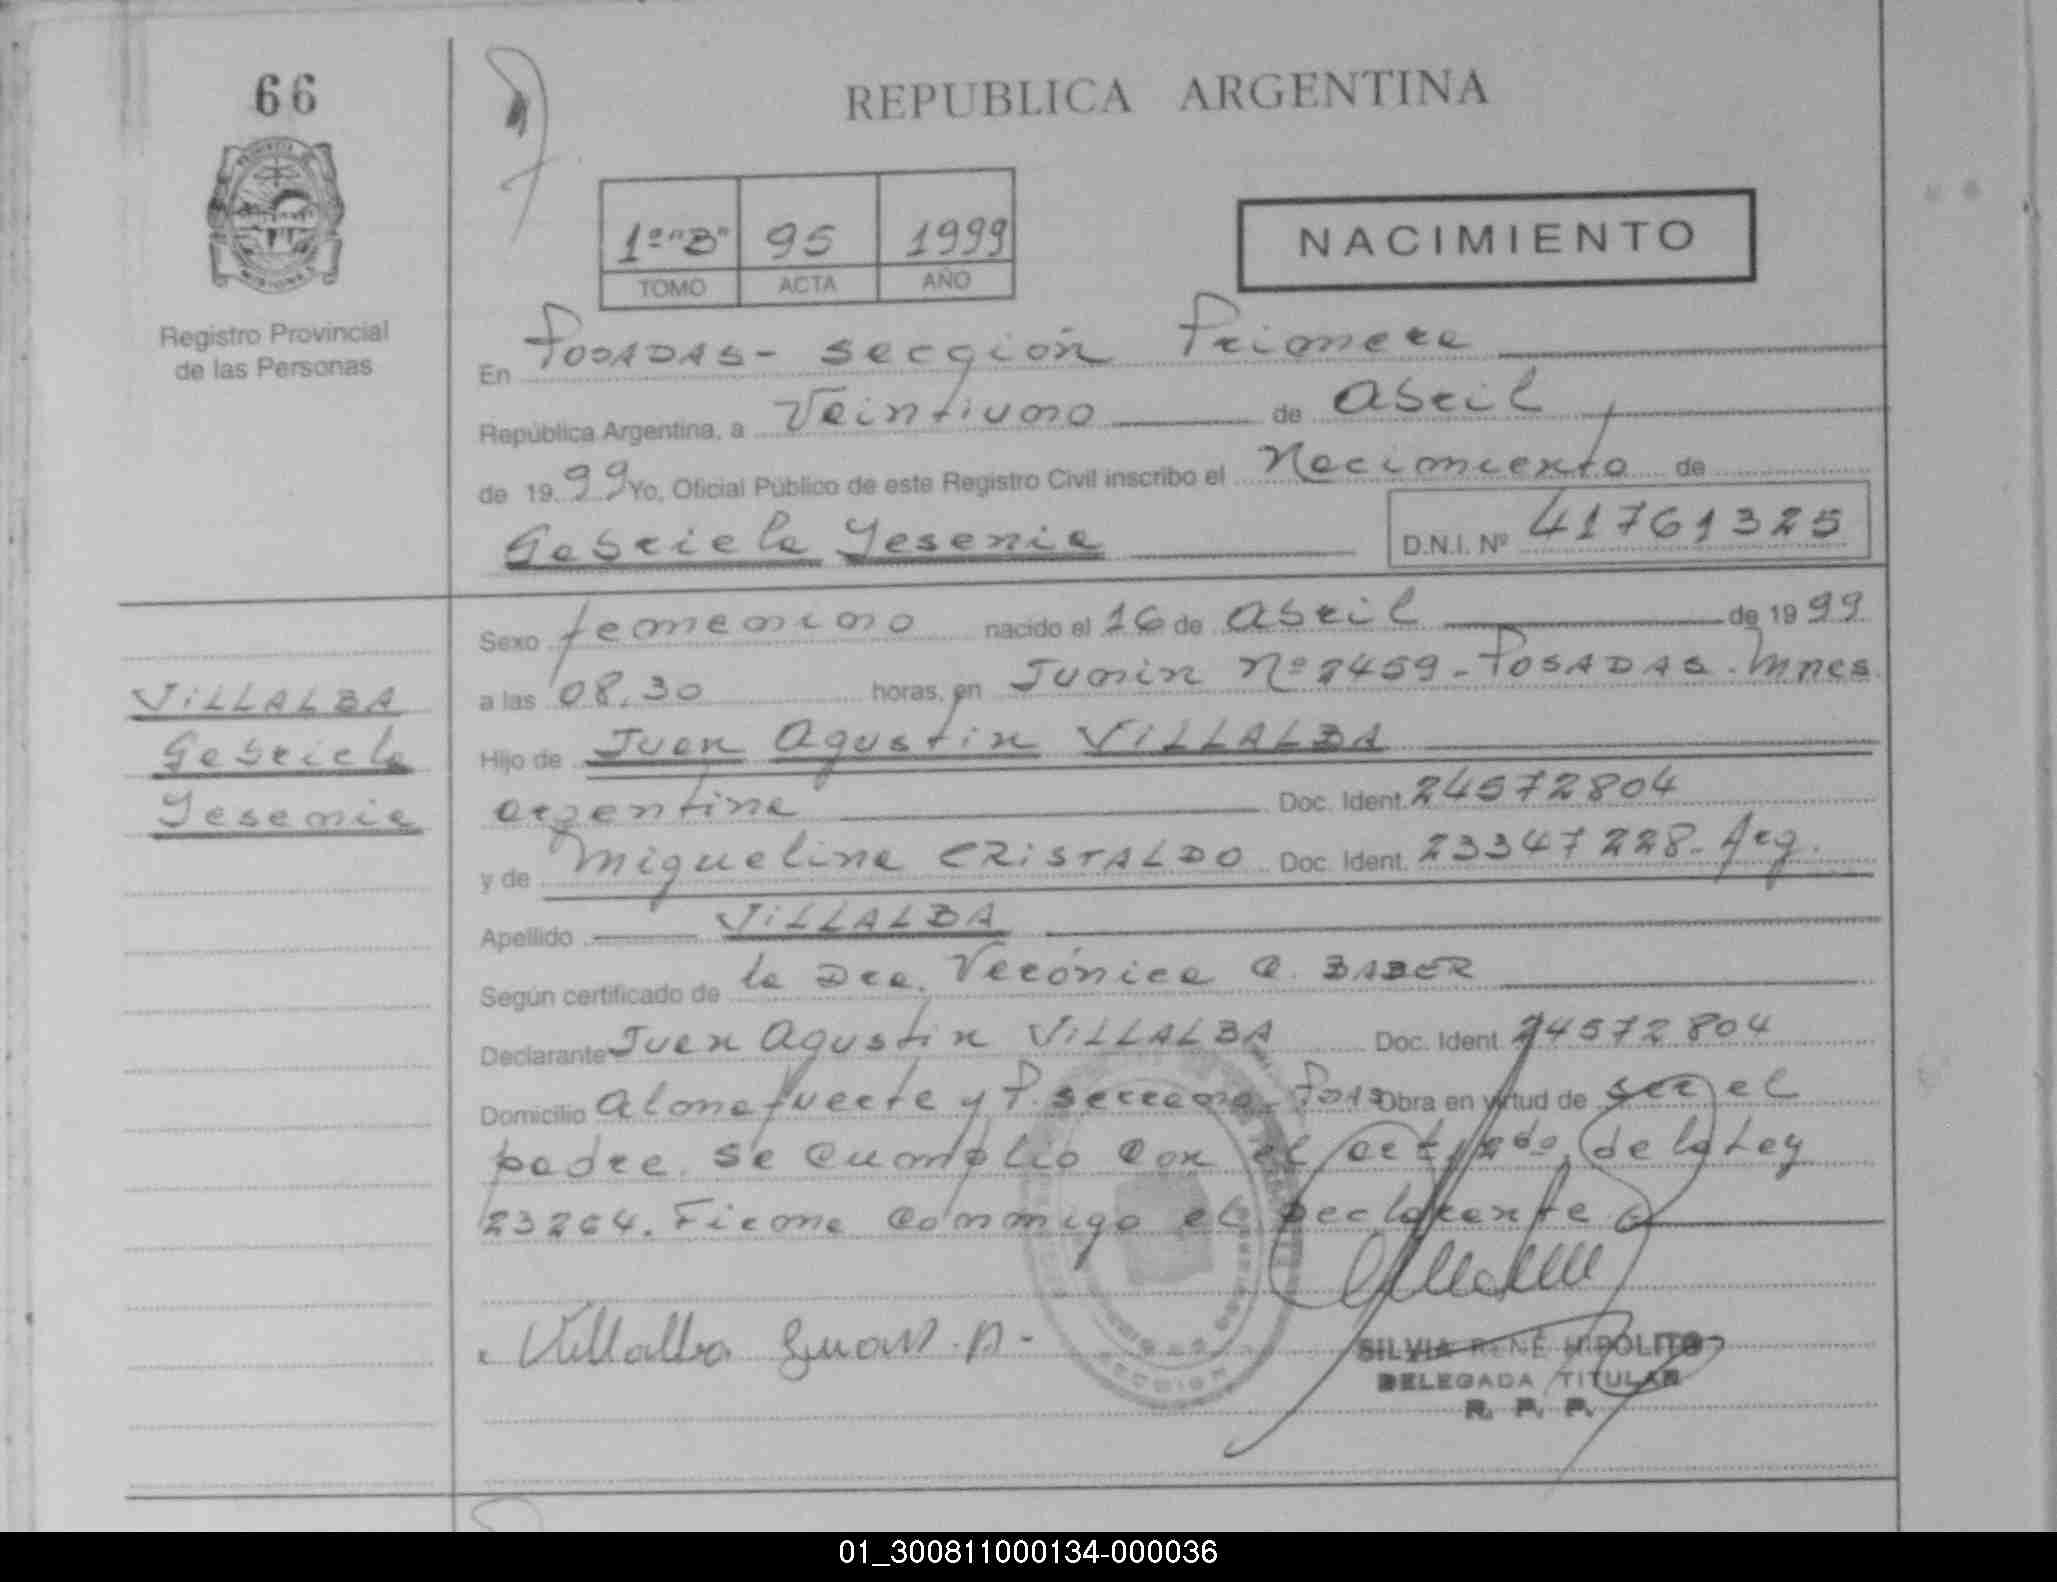 66
REPUBLICA ARGENTINA
1º "B" 95 1999
TOMO ACTA AÑO
NACIMIENTO
Registro Provincial
de las Personas
En POSADAS - sección Primera
República Argentina, a Veintiuno de Abril
de 19 99 Yo, Oficial Público de este Registro Civil inscribo el Nacimiento de
Gabriela Yesenia D.N.I. Nº 41761325
Sexo femenino nacido el 16 de Abril de 19 99
a las 08.30 horas, en Junin Nº 2459 - POSADAS. Mnes
VILLALBA
Gabriela
Yesenia
Hijo de Juan Agustin VILLALBA
argentina Doc. Ident. 24572804
y de Miguelina CRISTALDO Doc. Ident. 23347228 - Arg.
Apellido VILLALBA
Según certificado de la Dra. Verónica A. BABER
Declarante Juan Agustin VILLALBA Doc. Ident 24572804
Domicilio Almafuerte y P. Serrano - Pdas Obra en virtud de ser el
padre. Se cumplió con el art. 2do. de la Ley
23264. Firma conmigo el declarante
Villalba Juan. A -
SECCION
SILVIA RENÉ HIPÓLITO
DELEGADA TITULAR
R. P. P.
01_300811000134-000036